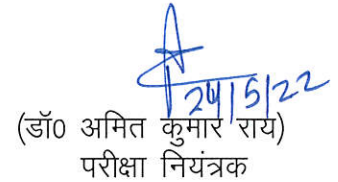 24|5|22
(डॉ0 अमित कुमार राय)
परीक्षा नियंत्रक